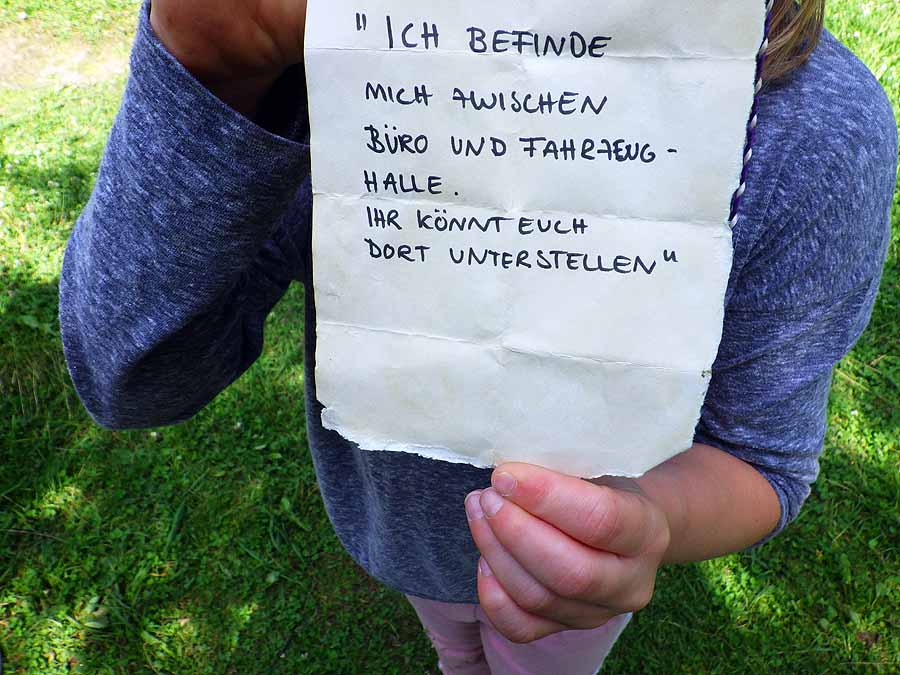 "ICH BEFINDE
MICH ZWISCHEN
BÜRO UND FAHRZEUG-
HALLE.
IHR KÖNNT EUCH
DORT UNTERSTELLEN"